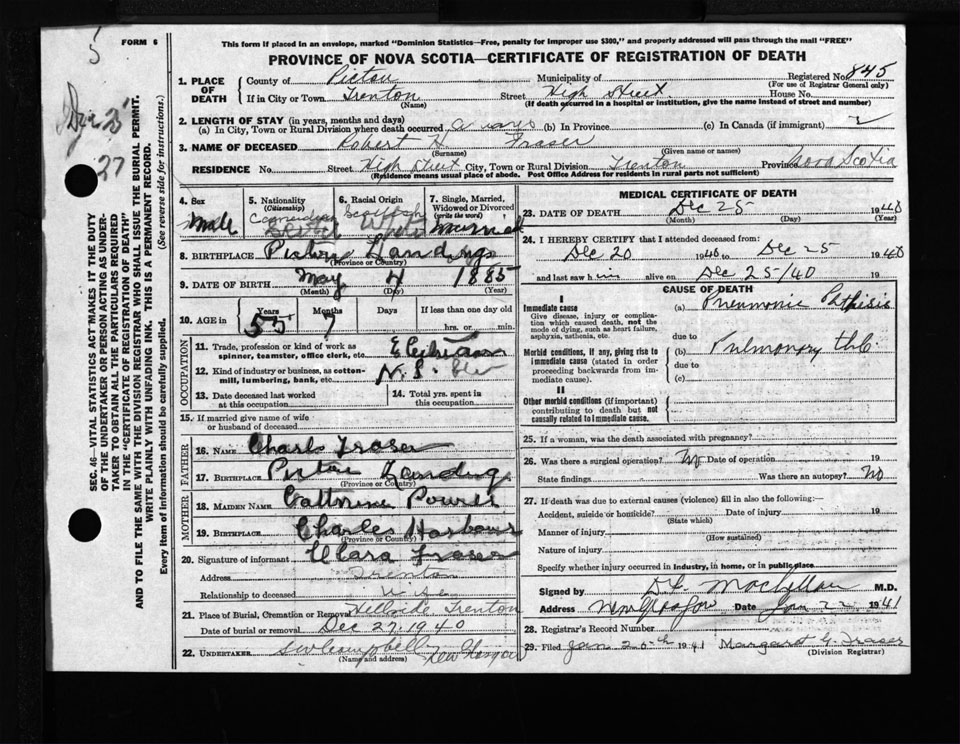 5
FORM 6
This form if placed in an envelope, marked "Dominion Statistics—Free, penalty for improper use $300," and properly addressed will pass through the mail "FREE"
PROVINCE OF NOVA SCOTIA—CERTIFICATE OF REGISTRATION OF DEATH
Dec 25
27
SEC. 46—VITAL STATISTICS ACT MAKES IT THE DUTY
OF THE UNDERTAKER OR PERSON ACTING AS UNDER-
TAKER TO OBTAIN ALL THE PARTICULARS REQUIRED
IN THE "CERTIFICATE OF REGISTRATION OF DEATH"
AND TO FILE THE SAME WITH THE DIVISION REGISTRAR WHO SHALL ISSUE THE BURIAL PERMIT.
WRITE PLAINLY WITH UNFADING INK. THIS IS A PERMANENT RECORD.
Every item of information should be carefully supplied. (See reverse side for instructions.)
1. PLACE OF DEATH County of Pictou Municipality of Registered No. 845
(For use of Registrar General only)
If in City or Town Trenton Street High Street House No.
(Name) (If death occurred in a hospital or institution, give the name instead of street and number)
2. LENGTH OF STAY (in years, months and days)
(a) In City, Town or Rural Division where death occurred (b) In Province (c) In Canada (if immigrant)
3. NAME OF DECEASED Robert H Fraser
(Surname) (Given name or names)
RESIDENCE No. Street High Street City, Town or Rural Division Trenton Province Nova Scotia
(Residence means usual place of abode. Post Office Address for residents in rural parts not sufficient)
4. Sex Male
5. Nationality (Citizenship) Canadian
6. Racial Origin Scottish
7. Single, Married, Widowed or Divorced (write the word) Married
8. BIRTHPLACE Pictou Landing
(Province or Country)
9. DATE OF BIRTH May 4 1885
(Month) (Day) (Year)
10. AGE in Years 55 Months 7 Days If less than one day old
hrs. or min.
OCCUPATION
11. Trade, profession or kind of work as
spinner, teamster, office clerk, etc.
12. Kind of industry or business, as cotton-
mill, lumbering, bank, etc. N.S.
13. Date deceased last worked
at this occupation
14. Total yrs. spent in
this occupation
15. If married give name of wife
or husband of deceased
FATHER
16. NAME Charls Fraser
17. BIRTHPLACE Pictou Landing
(Province or Country)
MOTHER
18. MAIDEN NAME Cathrine Power
19. BIRTHPLACE Charles Harbour
(Province or Country)
20. Signature of informant Clara Fraser
Address Trenton
Relationship to deceased Wife
21. Place of Burial, Cremation or Removal Hillside Trenton
Date of burial or removal Dec 27, 1940
22. UNDERTAKER Campbell New Glasgow
(Name and address)
MEDICAL CERTIFICATE OF DEATH
23. DATE OF DEATH Dec 25 1940
(Month) (Day) (Year)
24. I HEREBY CERTIFY that I attended deceased from:
Dec 20 1940 to Dec 25 1940
and last saw him alive on Dec 25/40 19
CAUSE OF DEATH
I
Immediate cause
Give disease, injury or complica-
tion which caused death, not the
mode of dying, such as heart failure,
asphyxia, asthenia, etc.
(a) Pneumonic Phthisis
due to
Morbid conditions, if any, giving rise to
immediate cause (stated in order
proceeding backwards from im-
mediate cause).
(b) Pulmonary tbc.
due to
(c)
II
Other morbid conditions (if important)
contributing to death but not
causally related to immediate cause.
25. If a woman, was the death associated with pregnancy?
26. Was there a surgical operation? No Date of operation 19
State findings Was there an autopsy? No
27. If death was due to external causes (violence) fill in also the following:—
Accident, suicide or homicide? Date of injury 19
(State which)
Manner of injury
(How sustained)
Nature of injury
Specify whether injury occurred in industry, in home, or in public place
Signed by MacLellan M.D.
Address New Glasgow Date Jan 22 1941
28. Registrar's Record Number
29. Filed Jan 20th 1941 Margaret G. Fraser
(Division Registrar)